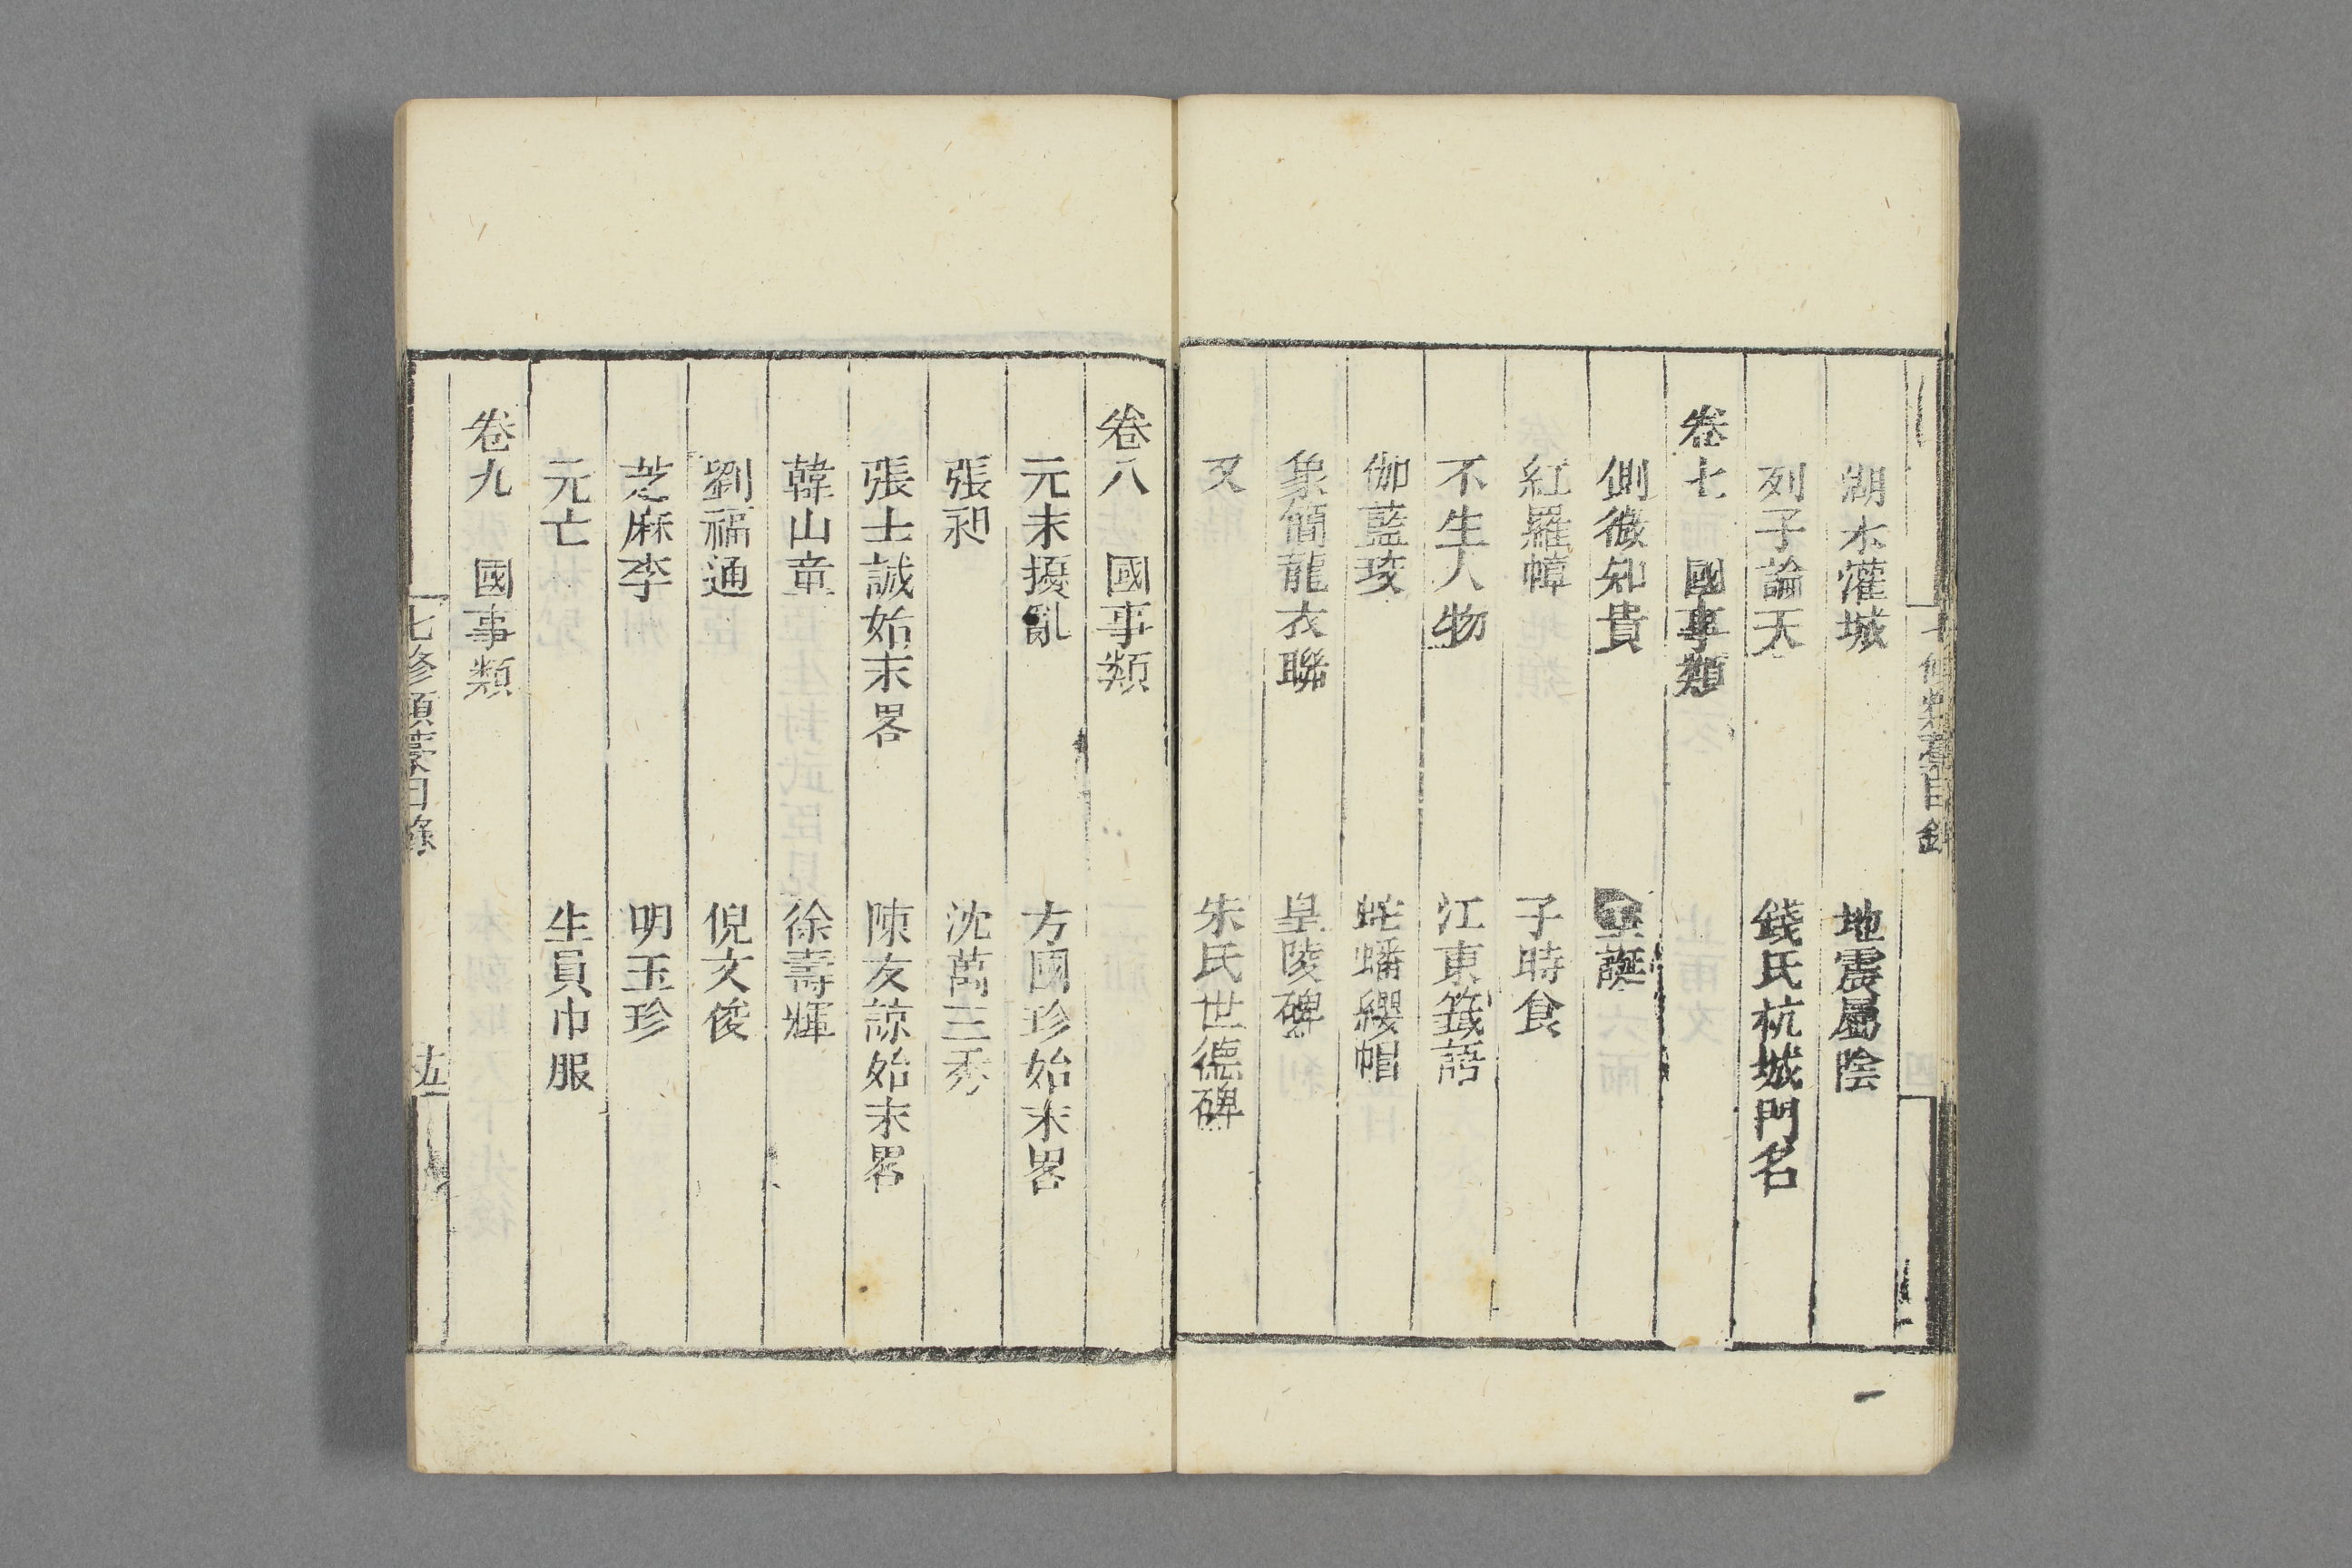 湖水灌城　地震屬陰
列子論天　錢氏杭城門名
卷七　國事類
側微知貴　聖誕
紅羅幛　子時食
不生人物　江東籤語
伽藍珓　蛇蟠纓帽
象簡龍衣聯　皇陵碑
又　朱氏世德碑
卷八　國事類
元末擾亂　方國珍始末畧
張昶　沈萬三秀
張士誠始末畧　陳友諒始末畧
韓山童　徐壽輝
劉福通　倪文俊
芝麻李　明玉珍
元亡　生員巾服
卷九　國事類
七修類藁目錄　十五